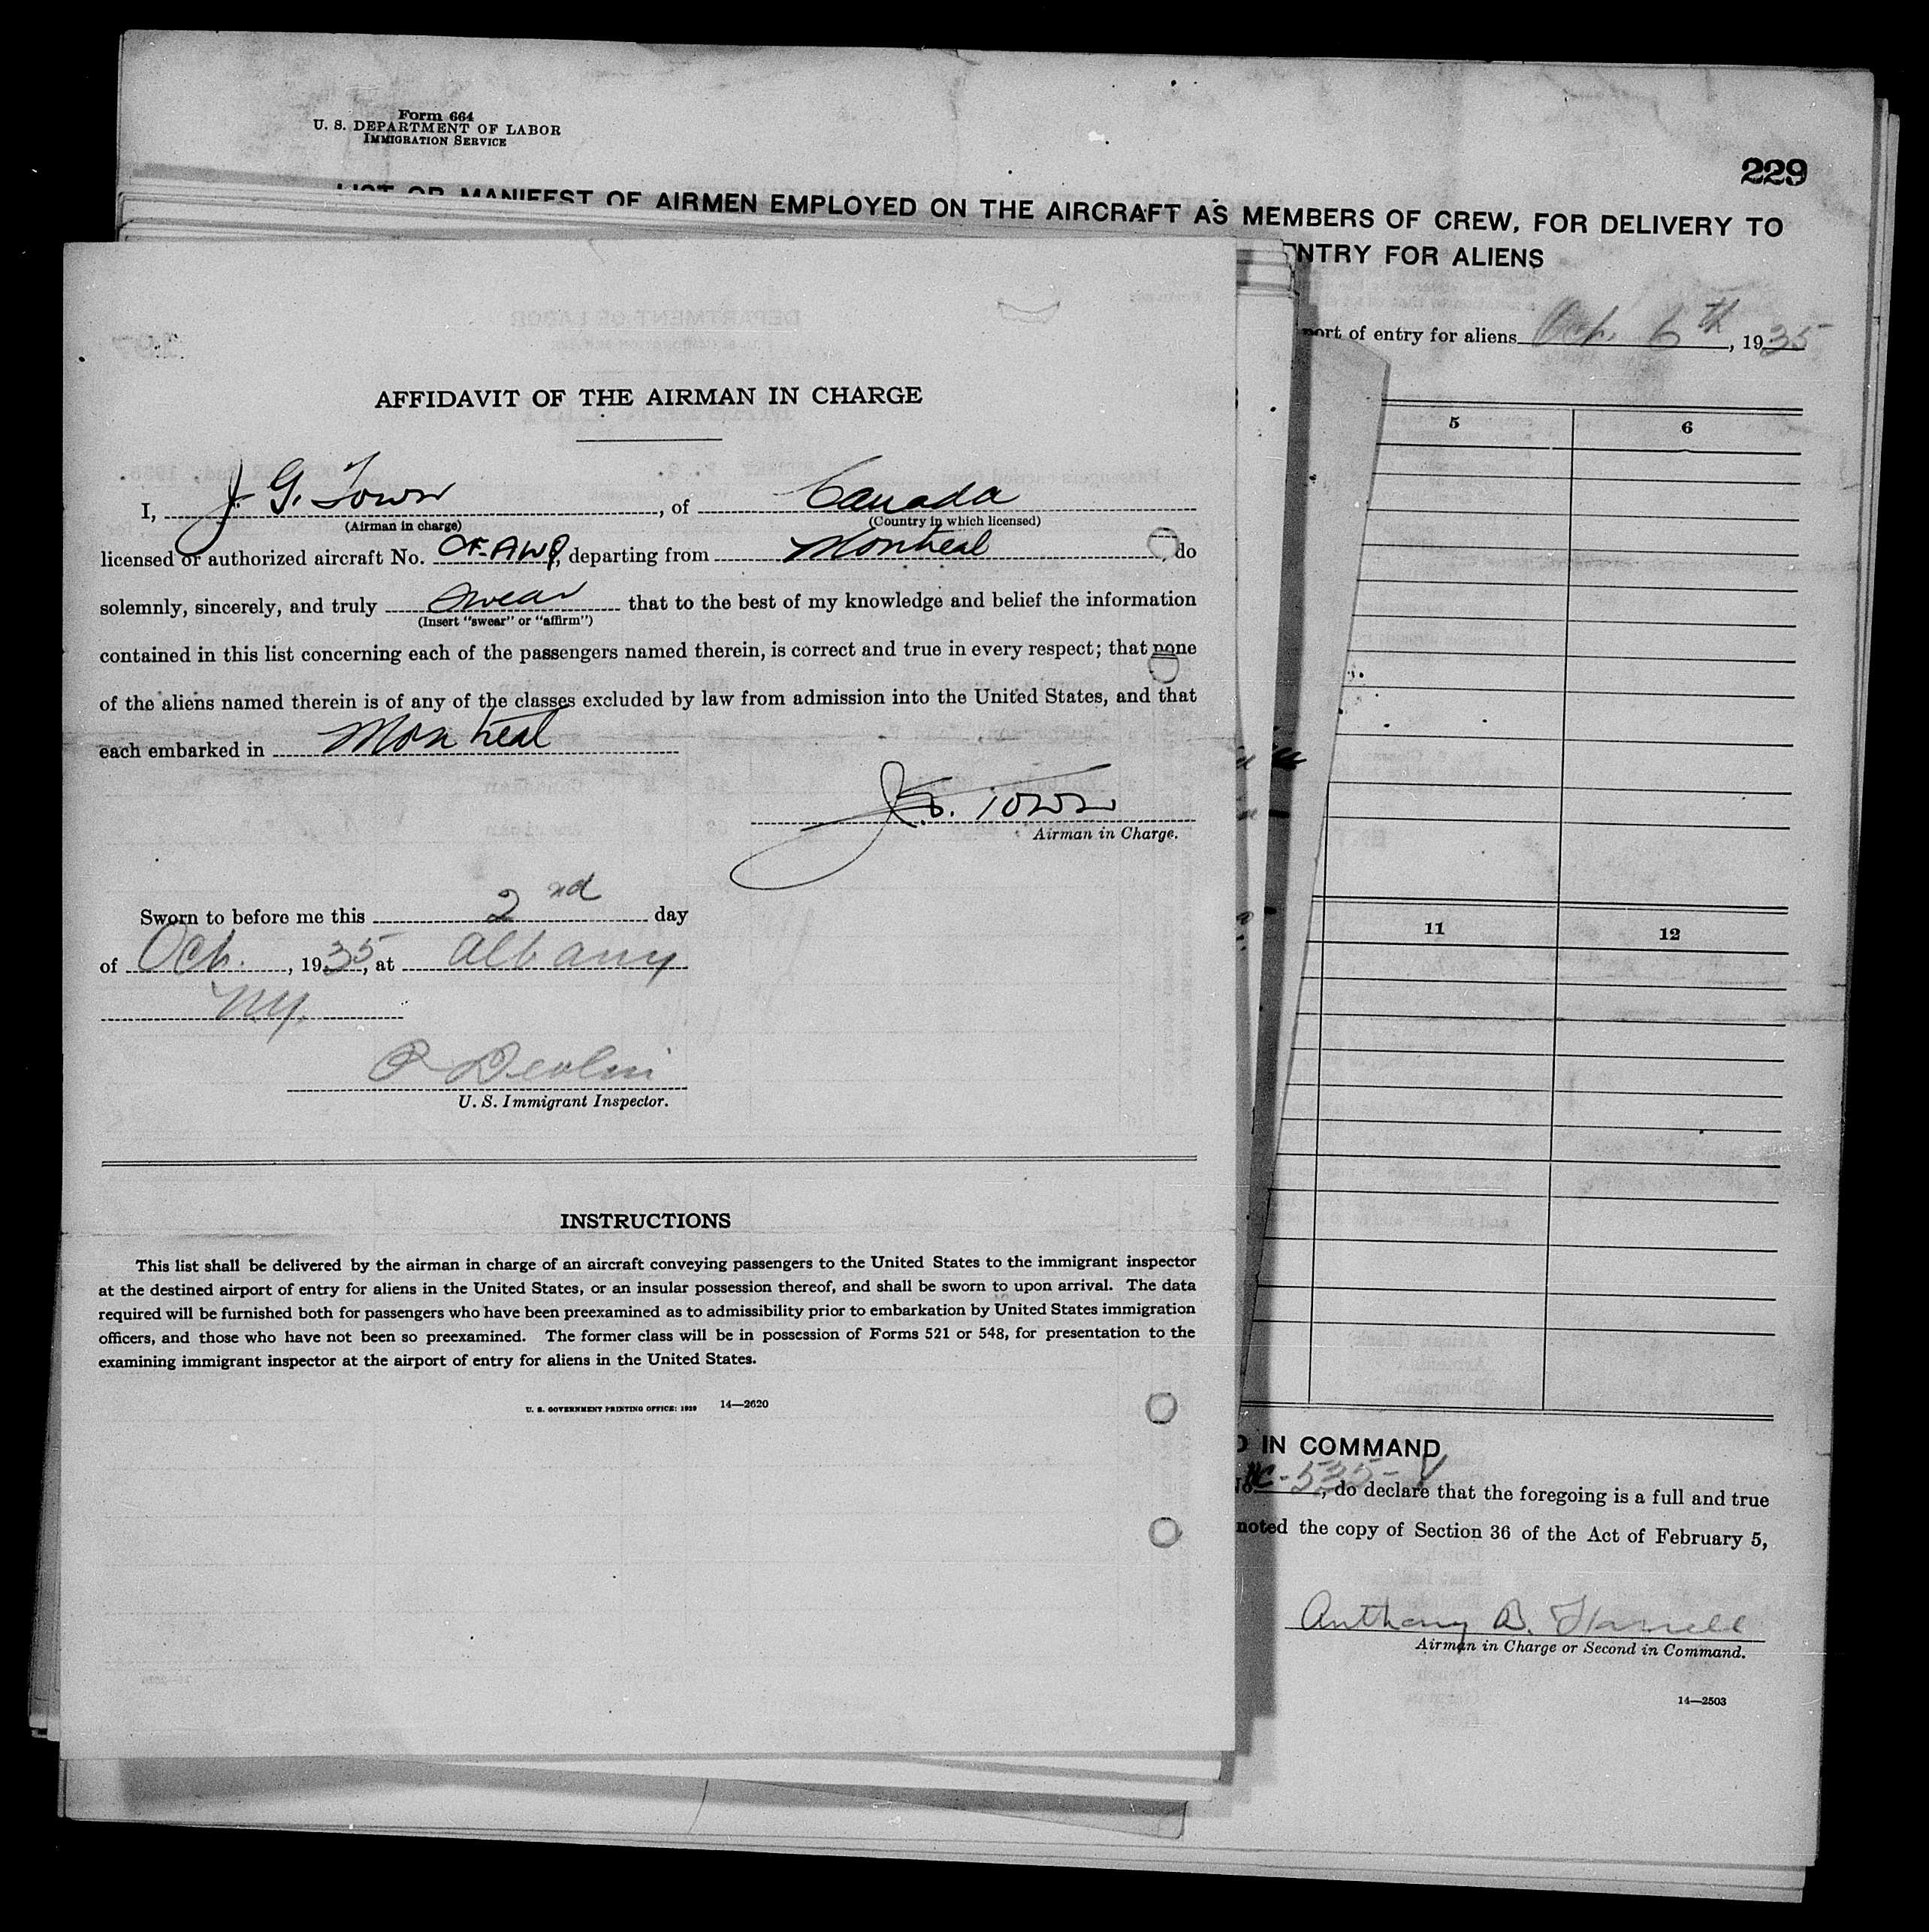 Form 664
U. S. DEPARTMENT OF LABOR
IMMIGRATION SERVICE
229
LIST OR MANIFEST OF AIRMEN EMPLOYED ON THE AIRCRAFT AS MEMBERS OF CREW, FOR DELIVERY TO
ENTRY FOR ALIENS
port of entry for aliens 6th, 1935
5 6
11 12
IN COMMAND
No. NC-535-V, do declare that the foregoing is a full and true
noted the copy of Section 36 of the Act of February 5,
Anthony B.
Airman in Charge or Second in Command.
14—2503
AFFIDAVIT OF THE AIRMAN IN CHARGE
I, J. G. Town, of Canada
(Airman in charge) (Country in which licensed)
licensed or authorized aircraft No. CF-AWQ, departing from Montreal do
solemnly, sincerely, and truly swear that to the best of my knowledge and belief the information
(Insert "swear" or "affirm")
contained in this list concerning each of the passengers named therein, is correct and true in every respect; that none
of the aliens named therein is of any of the classes excluded by law from admission into the United States, and that
each embarked in Montreal
J. G. Town
Airman in Charge.
Sworn to before me this 2nd day
of Oct., 1935, at Albany
N.Y.
P Devlin
U. S. Immigrant Inspector.
INSTRUCTIONS
This list shall be delivered by the airman in charge of an aircraft conveying passengers to the United States to the immigrant inspector
at the destined airport of entry for aliens in the United States, or an insular possession thereof, and shall be sworn to upon arrival. The data
required will be furnished both for passengers who have been preexamined as to admissibility prior to embarkation by United States immigration
officers, and those who have not been so preexamined. The former class will be in possession of Forms 521 or 548, for presentation to the
examining immigrant inspector at the airport of entry for aliens in the United States.
U. S. GOVERNMENT PRINTING OFFICE: 1929 14—2620